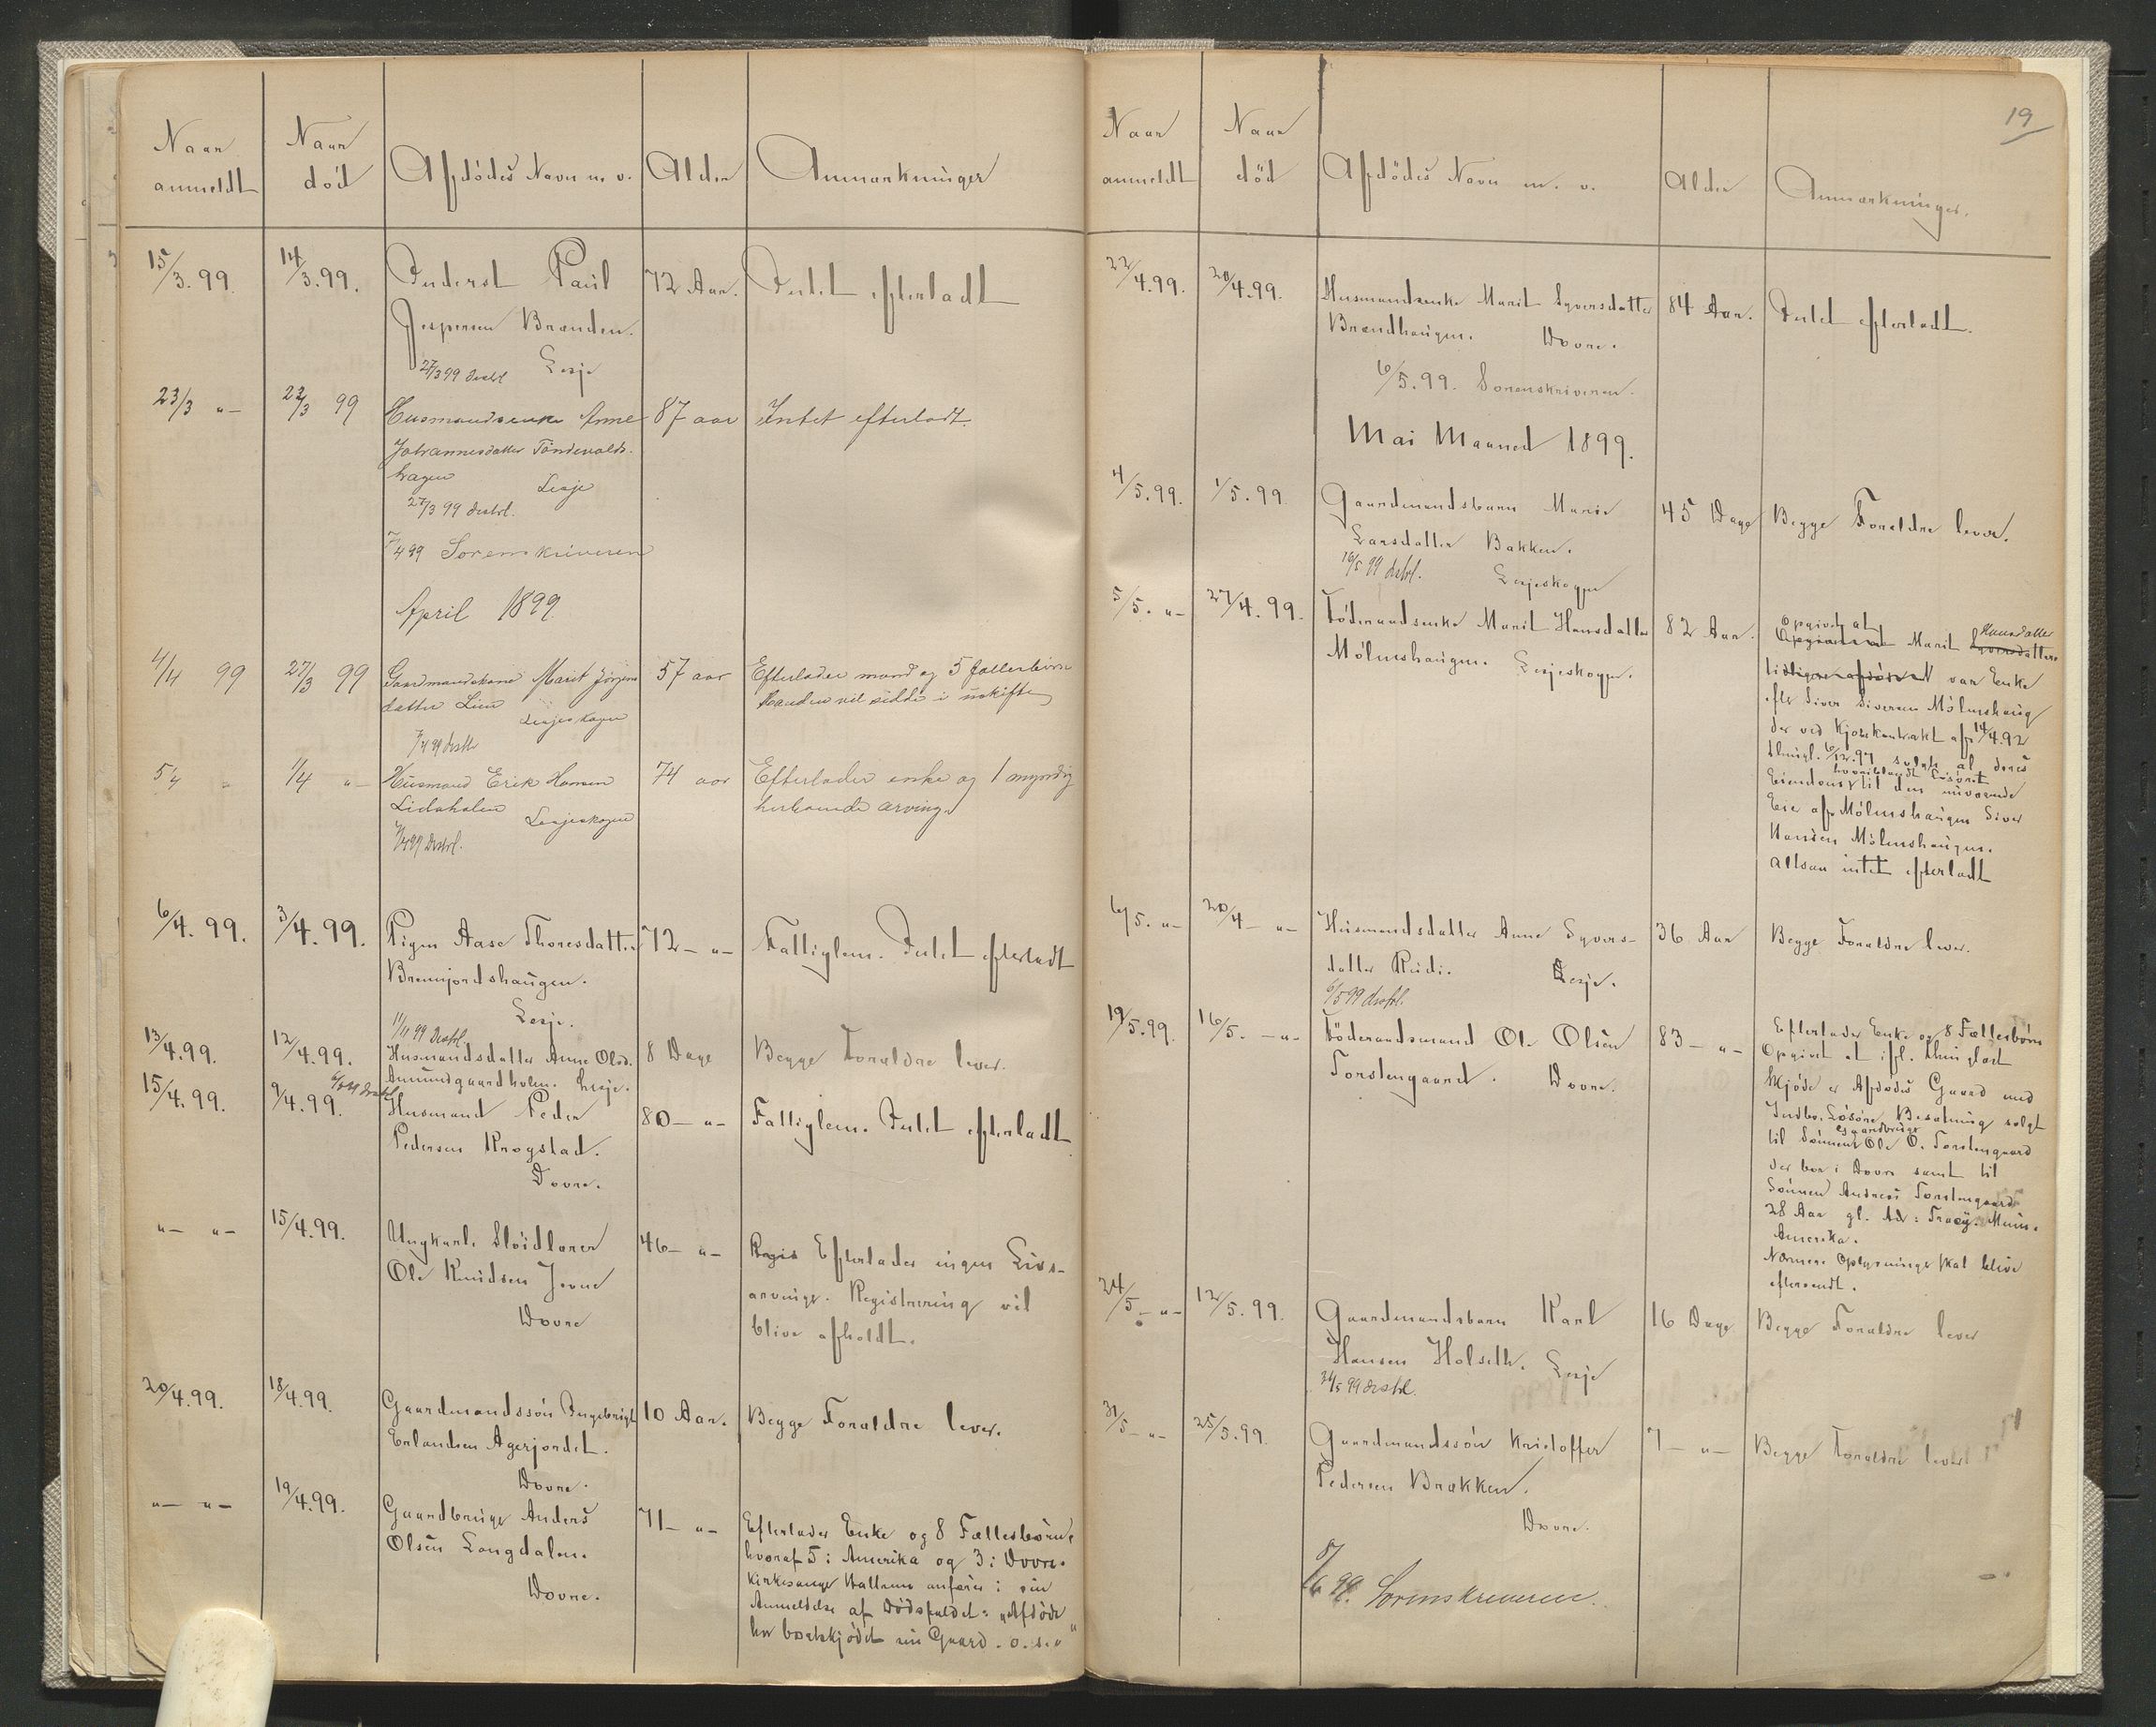 Naar
anmeldt
Naar
død
Afdødes Navn m. v.
Alder
Anmærkninger
15/3.99.
14/3.99.
Inderst Paul
72 Aar.
Intet efterladt
Jespersen Brænden.
27/3 99 distrl Lesje
23/3 "-
22/3 99
Husmandsenke Anne
87 aar
Intet efterladt.
Johannesdatter Töndevolds-
hagen Lesje
27/3 99 distrl.
7/4 99 Sorenskriveren
April 1899.
4/4 99
27/3 99
Gaardmandskone Marit Jörgens
57 aar
Efterlader mand og 5 fællesbörn
datter Lien
Manden vil sidde i uskifte
Lesjeskogen
5/4 "
1/4 "-
Husmand Erik Hansen
74 aar
Efterlader enke og 1 myndig
Lidahalen Lesjeskogen
herboende arving.
6/4.99.
3/4.99.
Pigen Aase Thoresdatter
72 - "-
Fattiglem. Intet efterladt
Brennjordshaugen.
Lesje.
13/4.99.
12/4.99.
Husmandsdatter Anne Olsd.
8 Dage
Begge Forældre lever.
Amundgaardholen. Lesje.
15/4.99.
9/4.99.
Husmand Peder
80 - "-
Fattiglem. Intet efterladt
Pedersen Krogstad.
Dovre.
"- "-
15/4.99.
Ungkarl, Sløidlærer
46 - "-
Regis Efterlader ingen Livs-
Ole Knudsen Jevne
arvinge. Registrering vil
Dovre
blive afholdt.
20/4.99.
18/4.99.
Gaardmandssön Ingebrigt
10 Aar.
Begge Forældre lever.
Erlandsen Agerjordet.
Dovre.
"- "-
19/4.99.
Gaardbruger Anders
71 - "-
Efterlader Enke og 8 Fællesbørn,
Olsen Langdalen.
hvoraf 5 i Amerika og 3 i Dovre.
Dovre.
Kirkesanger Hattrem anfører i sin
Anmeldelse af Dødsfaldet: „Afdøde
har bortskjødet sin Gaard. o. s. v"
19
Naar
anmeldt
Naar
död
Afdödes Navn m. v.
Alder
Anmærkninger.
22/4.99.
20/4.99.
Husmandsenke Marit Syversdatter
84 Aar.
Intet efterladt.
Brændhaugen. Dovre.
6/5.99. Sorenskriveren.
Mai Maaned 1899.
4/5.99.
1/5.99
Gaardmandsbarn Marie
45 Dage
Begge Forældre lever.
Larsdatter Bakken.
16/5 99 distrl. Lesjeskogen
5/5. "-
27/4.99.
Föderaadsenke Marit Hansdatter
82 Aar.
Opgivet at Hansdatter
Mölmshaugen. Lesjeskogen.
Marit Syversdatter
var Enke
efter Siver Siversen Mölmshaug
der ved Kjøbekontrakt af 14/4.92
solgte al deres
Eiendom til den nuværende
Eier af Mölmshaugen Siver
Hansen Mölmshaugen.
altsaa intet efterladt
6/5. "-
20/4 - "-
Husmandsdatter Anne Syvers-
36 Aar
Begge Forældre lever.
datter Rudi. Lesje.
6/5 99 distrl.
19/5.99.
16/5. - "-
Föderaadsmand Ole Olsen
83 - "-
Efterlader Enke og 8 Fællesbørn
Forstengaard. Dovre.
Opgivet at ifl. thinglæst
Skjøde er Afdødes Gaard med
Indbo, Løsøre, Besætning solgt
til Sønnen Ole O. Forstengaard
der bor i Dovre samt til
Sønnen Andreas Forstengaard
28 Aar gl. Adr: Tracy. Minn.
Amerika.
Nærmere Oplysninger skal blive
eftersendt.
24/5 - "-
12/5.99.
Gaardmandsbarn Karl
16 Dage
Begge Forældre lever
Hansen Holseth. Lesje
24/5 99 distrl.
31/5 - "-
25/5.99.
Gaardmandssön Kristoffer
7 - "-
Begge Forældre lever
Pedersen Brækken.
Dovre.
8/6 99. Sorenskriveren.